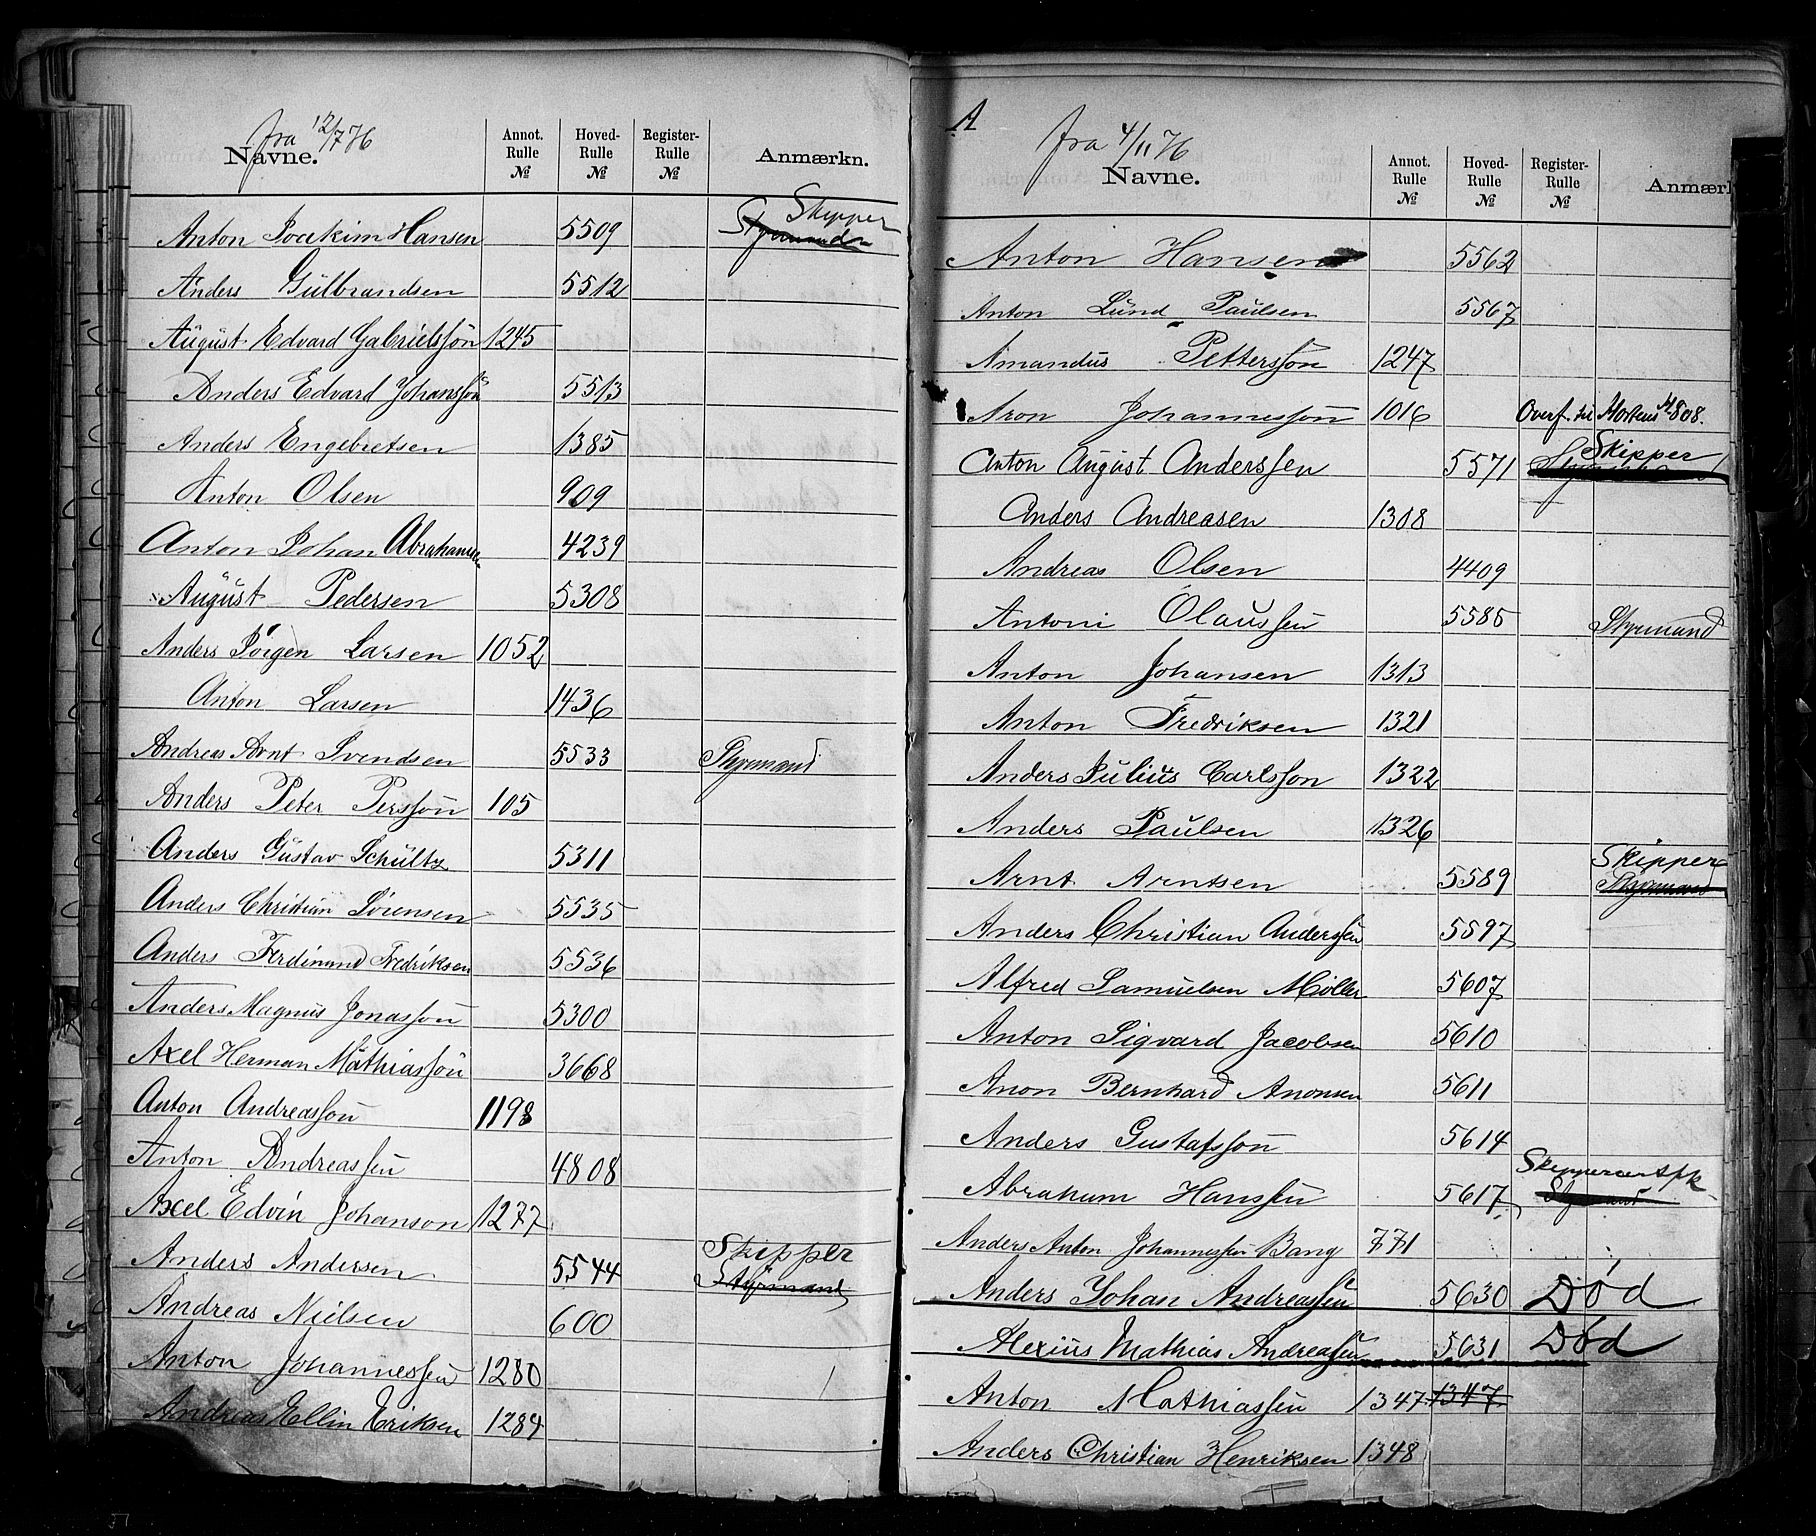 fra 12/7 76
Navne. Annot. Rulle № Hoved-Rulle № Register-Rulle № Anmærkn.
Anton Joakim Hansen 5509 Skipper Styrmand
Anders Gulbrandsen 5512
August Edvard Gabrielssön 1245
Anders Edvard Johanssön 5513
Anders Engebretsen 1385
Anton Olsen 909
Anton Johan Abrahamsen 4239
August Pedersen 5308
Anders Jörgen Larsen 1052
Anton Larsen 1436
Andreas Arnt Svendsen 5533 Styrmand
Anders Peter Perssön 105
Anders Gustav Schultz 5311
Anders Christian Sörensen 5535
Anders Ferdinand Fredriksen 5536
Anders Magnus Jonassön 5300
Axel Herman Mathiassön 3668
Anton Andreassön 1198
Anton Andreassen 4808
Axel Edvin Johanson 1277
Anders Andersen 5544 Skipper Styrmand
Andreas Nielsen 600
Anton Johannessen 1280
Andreas Ellin Eriksen 1284
A
fra 4/11 76
Navne. Annot. Rulle № Hoved-Rulle № Register-Rulle № Anmærk
Anton Hansen 5562
Anton Lund Paulsen 5567
Amandus Petterssön 1247
Aron Johannessön 1016 Overf. til Hortens № 808.
Anton August Anderssen 5571 Skipper
Anders Andreasen 1308
Andreas Olsen 4409
Antoni Olaussen 5585 Styrmand
Anton Johansen 1313
Anton Fredriksen 1321
Anders Julius Carlsson 1322
Anders Paulsen 1326
Arnt Arntsen 5589 Skipper Styrmand
Anders Christian Anderssen 5597
Alfred Samuelsen Möller 5607
Anton Sigvard Jacobsen 5610
Anon Bernhard Anonsen 5611
Anders Gustafssön 5614
Abraham Hanssen 5617 Styrmand
Anders Anton Johannessen Bang 771
Anders Johan Andreassen 5630 Död
Alexius Mathias Andreassen 5631 Död
Anton Mathiassen 1347 1347
Anders Christian Henriksen 1348